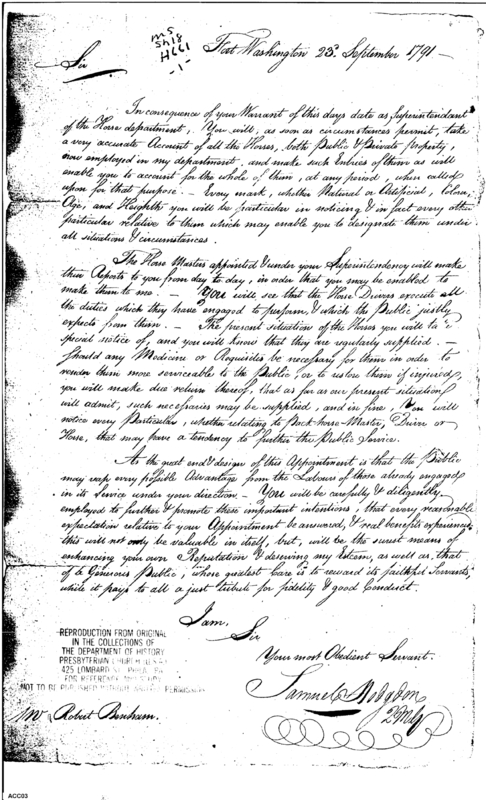 MS
Sh18
H661
-1-
Fort Washington 23d September 1791 -
Sir
In consequence of your Warrant of this days date as Superintendant
of the Horse department, You will, as soon as circumstances permit, take
a very accurate Account of all the Horses, both Public & Private Property,
now employed in my department and make such Entries of them as will
enable you to account for the whole of them, at any period, when called
upon for that purpose. Every mark, whether Natural or Artificial, Colour,
Age, and Heighth you will be particular in noticing & in fact every other
particular relative to them which may enable you to designate them under
all situations & circumstances.
The Horse Masters appointed & under your Superintendency will make
their Reports to you from day to day, in order that you may be enabled to
make them to me. - You will see that the Horse Drivers execute all
the duties which they have engaged to perform, & which the Public justly
expects from them. - The present situation of the Horses you will take
special notice of, and you will know that they are regularly supplied. -
Should any Medicine or Requisites be necessary for them in order to
render them more serviceable to the Public, or to restore them if injured,
you will make due return thereof, that as far as our present situation
will admit, such necessaries may be supplied, and in fine, You will
notice every Particular, whether relating to Pack horse Master, Driver or
Horse, that may have a tendency to further the Public Service.
As the great end & design of this Appointment is that the Public
may reap every possible Advantage from the Labours of those already engaged
in its Service under your direction - You will be carefully & diligently
employed to further & promote these important intentions, that every reasonable
expectation relative to your Appointment be answered, & real benefits experienced
this will not only be valuable in itself, but, will be the surest means of
enhancing your own Reputation & deserving my Esteem, as well as, that
of a Generous Public, whose greatest Care is to reward its faithful Servants,
while it pays to all a just tribute for fidelity & good Conduct.
I am,
Sir
Your most Obedient Servant.
Samuel Hodgdon
QMG
REPRODUCTION FROM ORIGINAL
IN THE COLLECTIONS OF
THE DEPARTMENT OF HISTORY
PRESBYTERIAN CHURCH (U.S.A.)
425 LOMBARD ST. PHILA. PA
FOR REFERENCE USE ONLY
NOT TO BE PUBLISHED WITHOUT PERMISSION
Mr Robert Benham.
ACC03